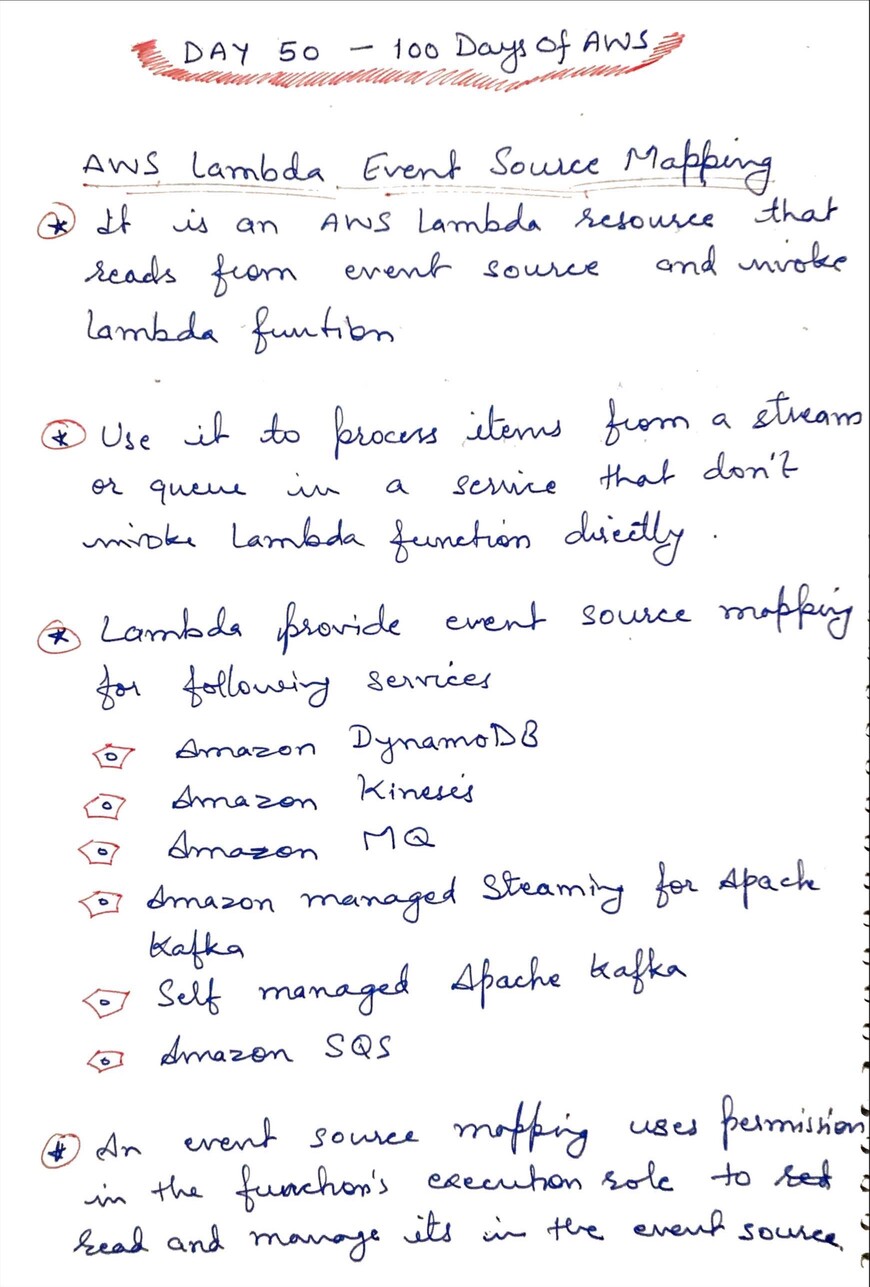 DAY 50 - 100 Days of AWS
AWS Lambda Event Source Mapping
It is an AWS Lambda resource that
reads from event source and invoke
Lambda funtion
Use it to process items from a stream
or queue in a service that don't
invoke Lambda function directly.
Lambda provide event source mapping
for following services
Amazon DynamoDB
Amazon Kinesis
Amazon MQ
Amazon managed Steaming for Apach
Kafka
Self managed Apache Kafka
Amazon SQS
An event source mapping uses permission
in the function's execution role to red
read and manage its in the event source.